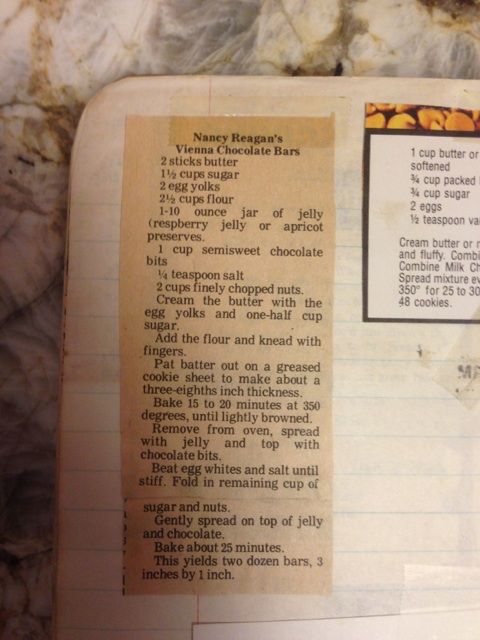 Nancy Reagan's
Vienna Chocolate Bars
2 sticks butter
1½ cups sugar
2 egg yolks
2½ cups flour
1-10 ounce jar of jelly
(respberry jelly or apricot
preserves.
1 cup semisweet chocolate
bits
¼ teaspoon salt
2 cups finely chopped nuts.
Cream the butter with the
egg yolks and one-half cup
sugar.
Add the flour and knead with
fingers.
Pat batter out on a greased
cookie sheet to make about a
three-eighths inch thickness.
Bake 15 to 20 minutes at 350
degrees, until lightly browned.
Remove from oven, spread
with jelly and top with
chocolate bits.
Beat egg whites and salt until
stiff. Fold in remaining cup of
sugar and nuts.
Gently spread on top of jelly
and chocolate.
Bake about 25 minutes.
This yields two dozen bars, 3
inches by 1 inch.
1 cup butter or
softened
¾ cup packed
¾ cup sugar
2 eggs
½ teaspoon
Cream butter or
and fluffy.
Combine Milk
Spread mixture
350° for 25 to
48 cookies.